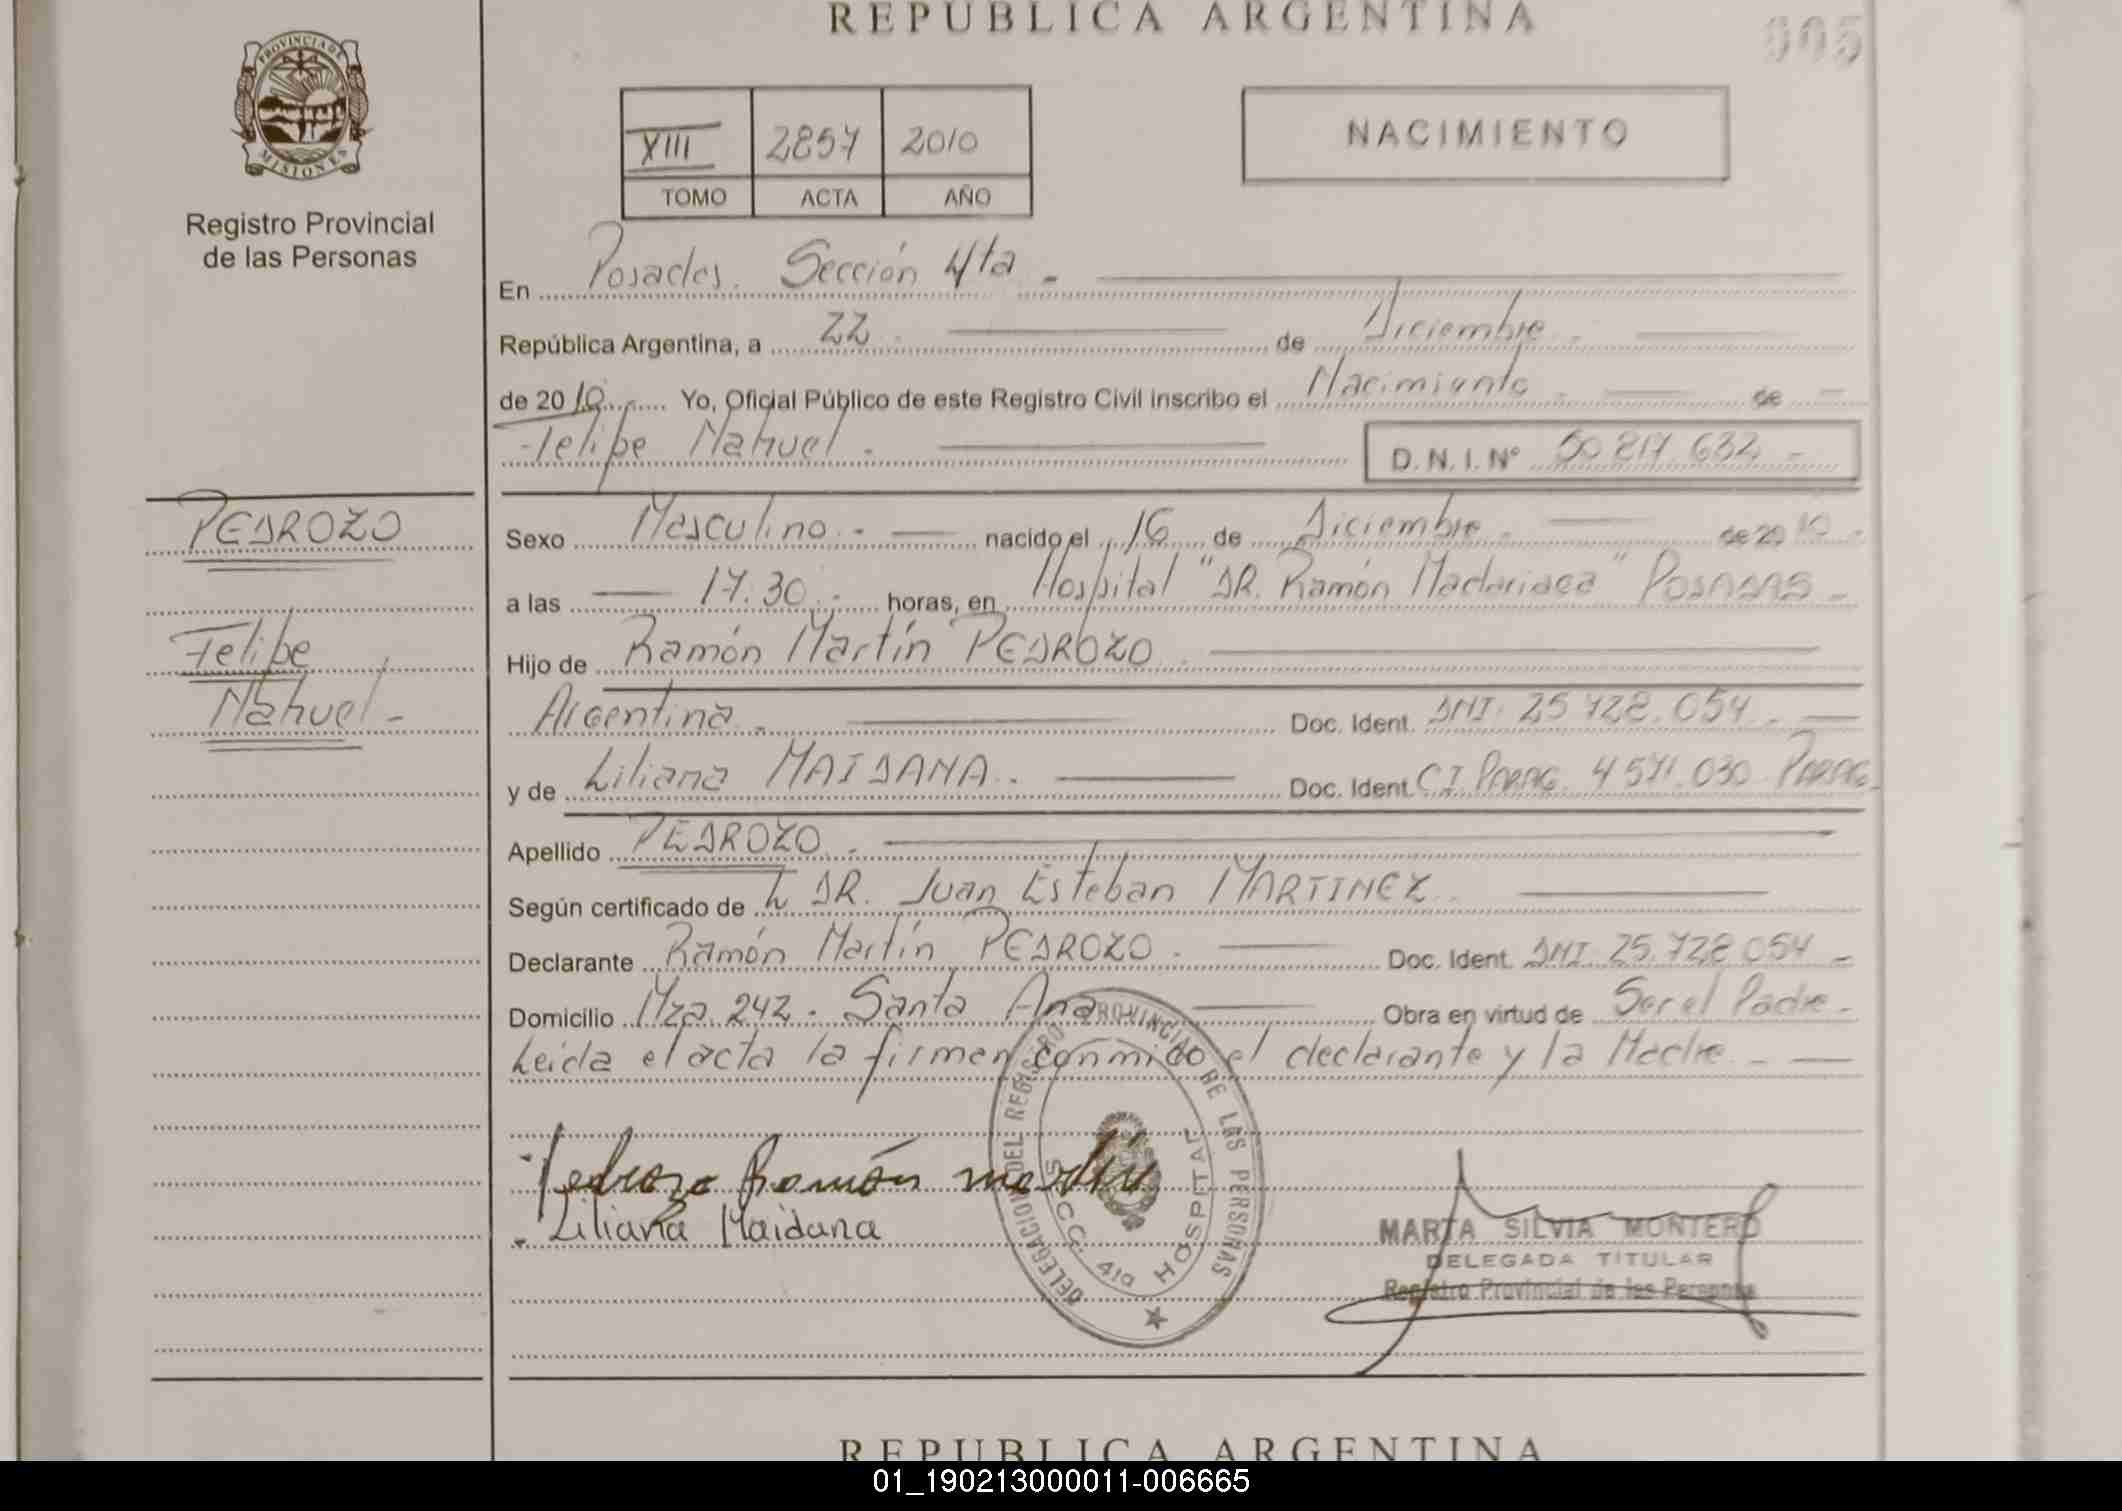 REPUBLICA ARGENTINA
005
PROVINCIA DE
MISIONES
Registro Provincial
de las Personas
XIII 2857 2010
TOMO ACTA AÑO
NACIMIENTO
En Posadas. Sección 4ta -
República Argentina, a 22 - de Diciembre -
de 2010 - Yo, Oficial Público de este Registro Civil inscribo el Nacimiento - de -
Felipe Nahuel - D.N.I. Nº 50 817.632 -
PEDROZO
Felipe
Nahuel -
Sexo Masculino - nacido el 16 de Diciembre - de 2010 -
a las 17.30 - horas, en Hospital "DR. Ramón Madariaga" POSADAS -
Hijo de Ramón Martín PEDROZO
Argentina - Doc. Ident. DNI. 25 728.054 -
y de Liliana MAIDANA - Doc. Ident. CI PARAG. 4 571.030 PARAG.
Apellido PEDROZO -
Según certificado de DR. Juan Esteban MARTINEZ
Declarante Ramón Martín PEDROZO - Doc. Ident. DNI. 25.728 054 -
Domicilio Mza. 242 - Santa Ana Obra en virtud de Ser el Padre -
Leida el acta la firman conmigo el declarante y la Madre -
Pedrozo Ramón martin
Liliana Maidana
DELEGACION DEL REGISTRO PROVINCIAL DE LAS PERSONAS
SECC. 4ta HOSPITAL
MARTA SILVIA MONTERO
DELEGADA TITULAR
Registro Provincial de las Personas
REPUBLICA ARGENTINA
01_190213000011-006665